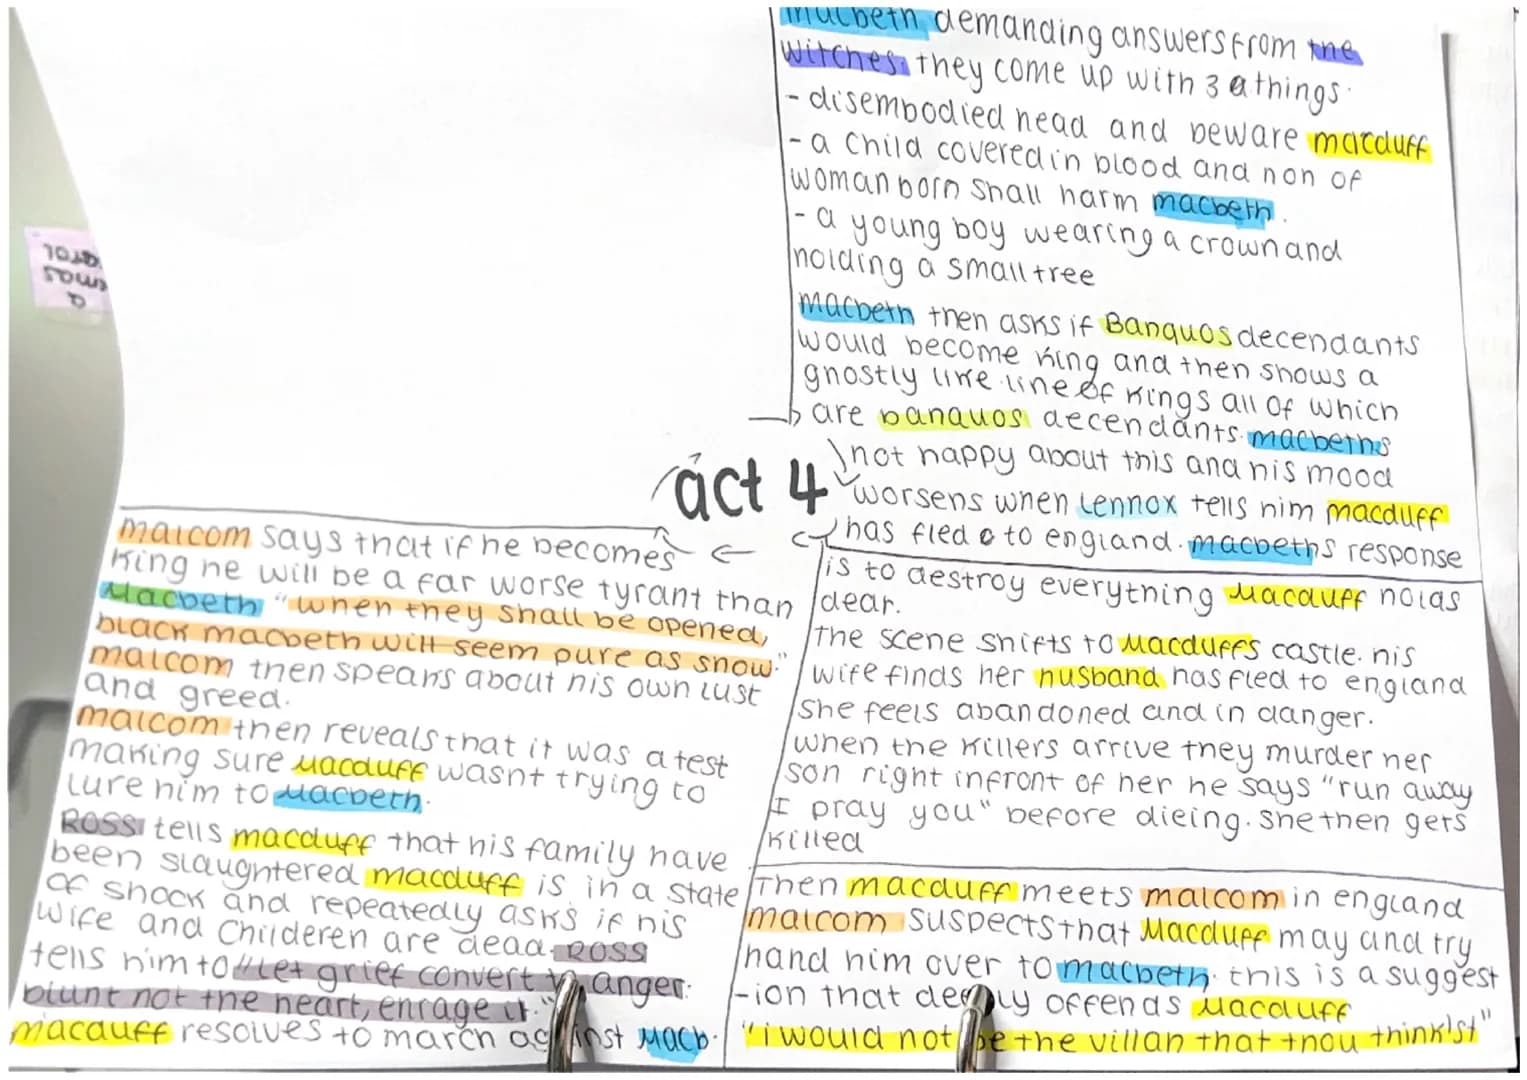 macbeth demanding answers from the
witches. they come up with 3 things.
- disembodied head and beware macduff
- a child covered in blood and non of
woman born shall harm macbeth.
- a young boy wearing a crown and
holding a small tree
macbeth then asks if Banquos decendants
would become king and then shows a
ghostly like line of kings all of which
are banquos decendants. macbeths
not happy about this and his mood
worsens when Lennox tells him macduff
has fled to england. macbeths response
is to destroy everything Macduff holds
dear.
the scene shifts to Macduffs castle. his
wife finds her husband has fled to england
she feels abandoned and in danger.
when the killers arrive they murder her
son right infront of her he says "run away
I pray you" before dieing. she then gets
killed
Then macduff meets malcom in england
malcom suspects that Macduff may and try
hand him over to macbeth. this is a suggest
-ion that deeply offends Macduff
"i would not be the villan that thou think'st"
act 4
malcom says that if he becomes
king he will be a far worse tyrant than
Macbeth "when they shall be opened,
black macbeth will seem pure as snow."
malcom then speaks about his own lust
and greed.
malcom then reveals that it was a test
making sure Macduff wasnt trying to
lure him to Macbeth.
ROSS tells macduff that his family have
been slaughtered macduff is in a state
of shock and repeatedly asks if his
wife and Childeren are dead. ROSS
tells him to "Let grief convert to anger:
blunt not the heart, enrage it."
macduff resolves to march against Macb.
a